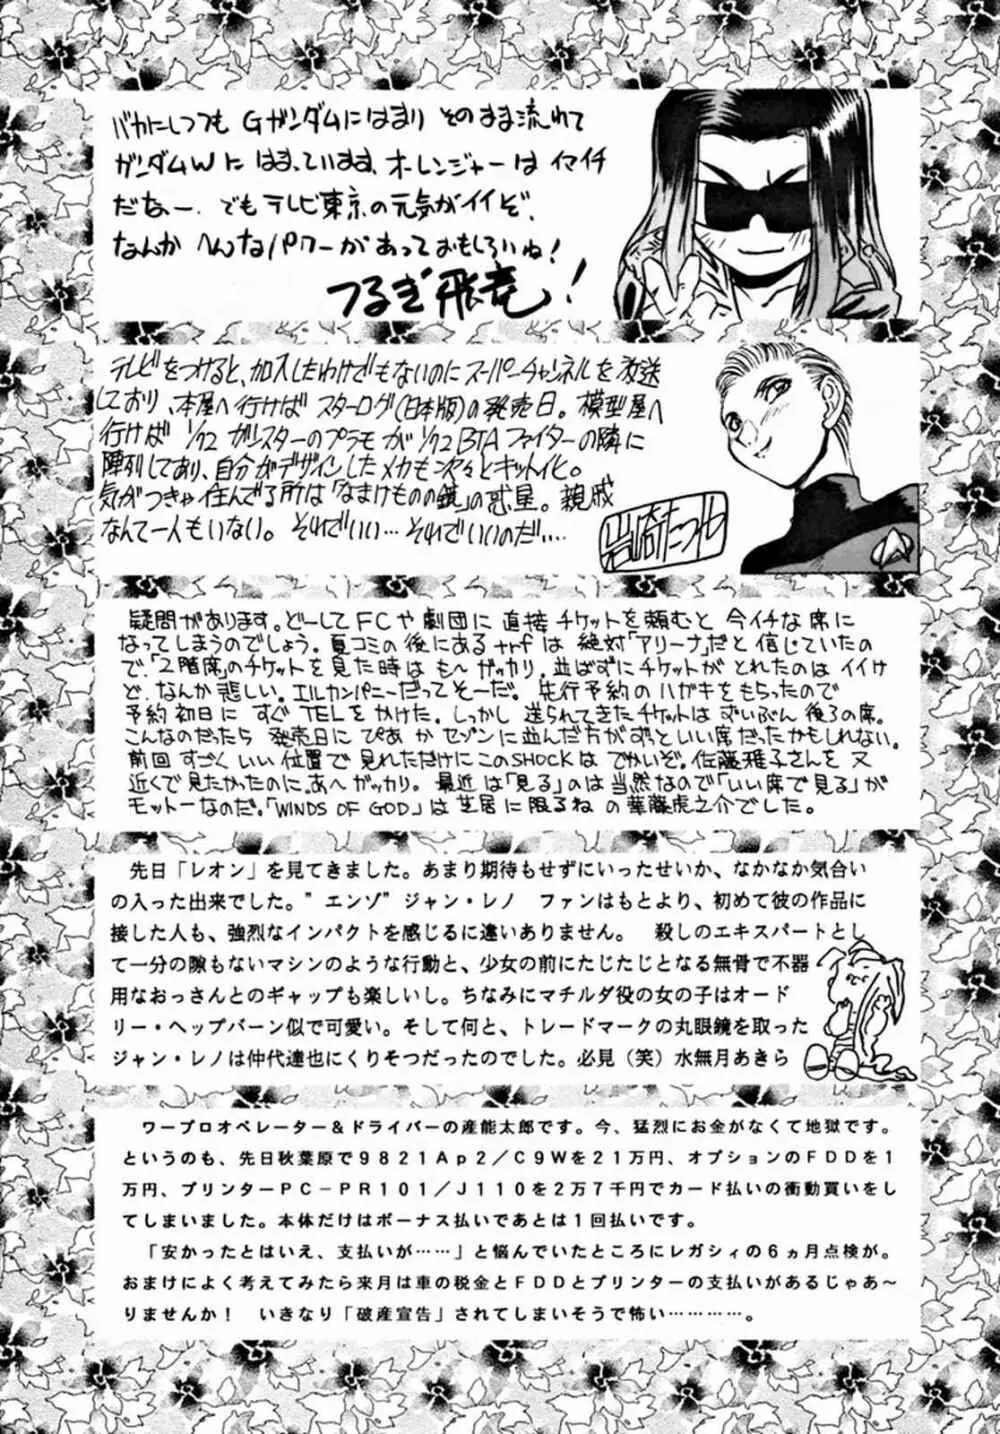 バカにしつつも Gガンダムにはまり そのまま流れて
ガンダムWに はまっています。オーレンジャーは イマイチ
だなー. でもテレビ東京の元気がイイぞ、
なんか へんなパワーがあっておもしろいね!
つるぎ飛竜!
テレビをつけると、加入したわけでもないのにスーパーチャンネルを放送
しており、本屋へ行けば スターログ(日本版)の発売日。模型屋へ
行けば 1/72 ガンスターのプラモが 1/72 BTAファイターの隣に
陣列しており、自分がデザインしたメカも次々とキット化。
気がつきゃ住んでる所は「なまけものの鏡」の惑星。親戚
なんて一人もいない。それでいい…それでいいのだ‥‥
岩崎たつや
疑問があります。どーしてFCや劇団に直接チケットを頼むと 今イチな席に
なってしまうのでしょう。夏コミの後にあるtrfは 絶対「アリーナ」だと信じていたの
で、「2階席」のチケットを見た時はも〜ガッカリ。並ばずにチケットがとれたのはイイけ
ど、なんか悲しい。エルカンパニーだってそーだ。先行予約のハガキをもらったので
予約初日に すぐTELをかけた。しっかし 送られてきたチケットは ずいぶん後ろの席。
こんなのだったら 発売日に ぴあ か セゾンに並んだ方がずっといい席だったかもしれない。
前回すごくいい位置で見れただけにこのSHOCKは でかいぞ。佐藤雅子さんを 又
近くで見たかったのに。あ〜ガッカリ。最近は「見る」のは当然なので「いい席で見る」が
モットーなのだ。「WINDS OF GOD」は芝居に限るね の 華藤虎之介でした。
先日「レオン」を見てきました。あまり期待もせずにいったせいか、なかなか気合い
の入った出来でした。”エンゾ”ジャン・レノ ファンはもとより、初めて彼の作品に
接した人も、強烈なインパクトを感じるに違いありません。 殺しのエキスパートとし
て一分の隙もないマシンのような行動と、少女の前にたじたじとなる無骨で不器
用なおっさんとのギャップも楽しいし。ちなみにマチルダ役の女の子はオード
リー・ヘップバーン似で可愛い。そして何と、トレードマークの丸眼鏡を取った
ジャン・レノは仲代達也にくりそつだったのでした。必見(笑)水無月あきら
ワープロオペレーター&ドライバーの産能太郎です。今、猛烈にお金がなくて地獄です。
というのも、先日秋葉原で9821Ap2/C9Wを21万円、オプションのFDDを1
万円、プリンターPC-PR101/J110を2万7千円でカード払いの衝動買いをし
てしまいました。本体だけはボーナス払いであとは1回払いです。
「安かったとはいえ、支払いが……」と悩んでいたところにレガシィの6ヵ月点検が。
おまけによく考えてみたら来月は車の税金とFDDとプリンターの支払いがあるじゃあ〜
りませんか! いきなり「破産宣告」されてしまいそうで怖い…………。